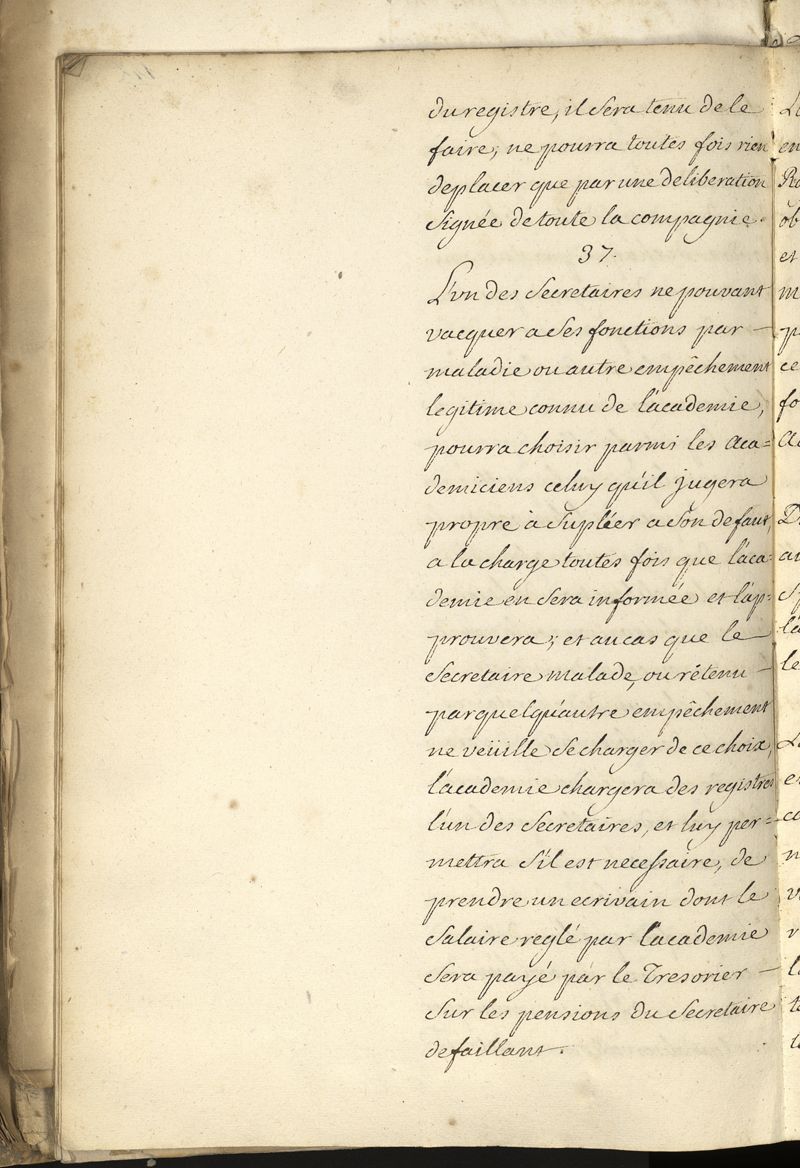 du registre, il sera tenu de le
faire; ne pourra toutes fois rien
deplacer que par une deliberation
signée de toute la compagnie.
37.
L'vn des Secretaires ne pouvant
vacquer a ses fonctions par —
maladie ou autre empêchement
legitime connu de l'académie,
pourra choisir parmi les Aca=
demiciens celuy qu'il jugera
propre à supléer a son defaut,
a la charge toutes fois que l'aca=
demie en sera informée et l'ap=
prouvera; et au cas que le —
Secretaire malade, ou rétenu —
par quelqu'autre empêchement
ne veüille se charger de ce choix,
l'academie chargera des registres
l'un des Secretaires, et luy per=
mettra s'il est necessaire, de
prendre un ecrivain dont le
salaire reglé par l'academie
sera payé par le Tresorier —
sur les pensions du Secretaire
defaillant.
en
ob
et
ce
fo
le